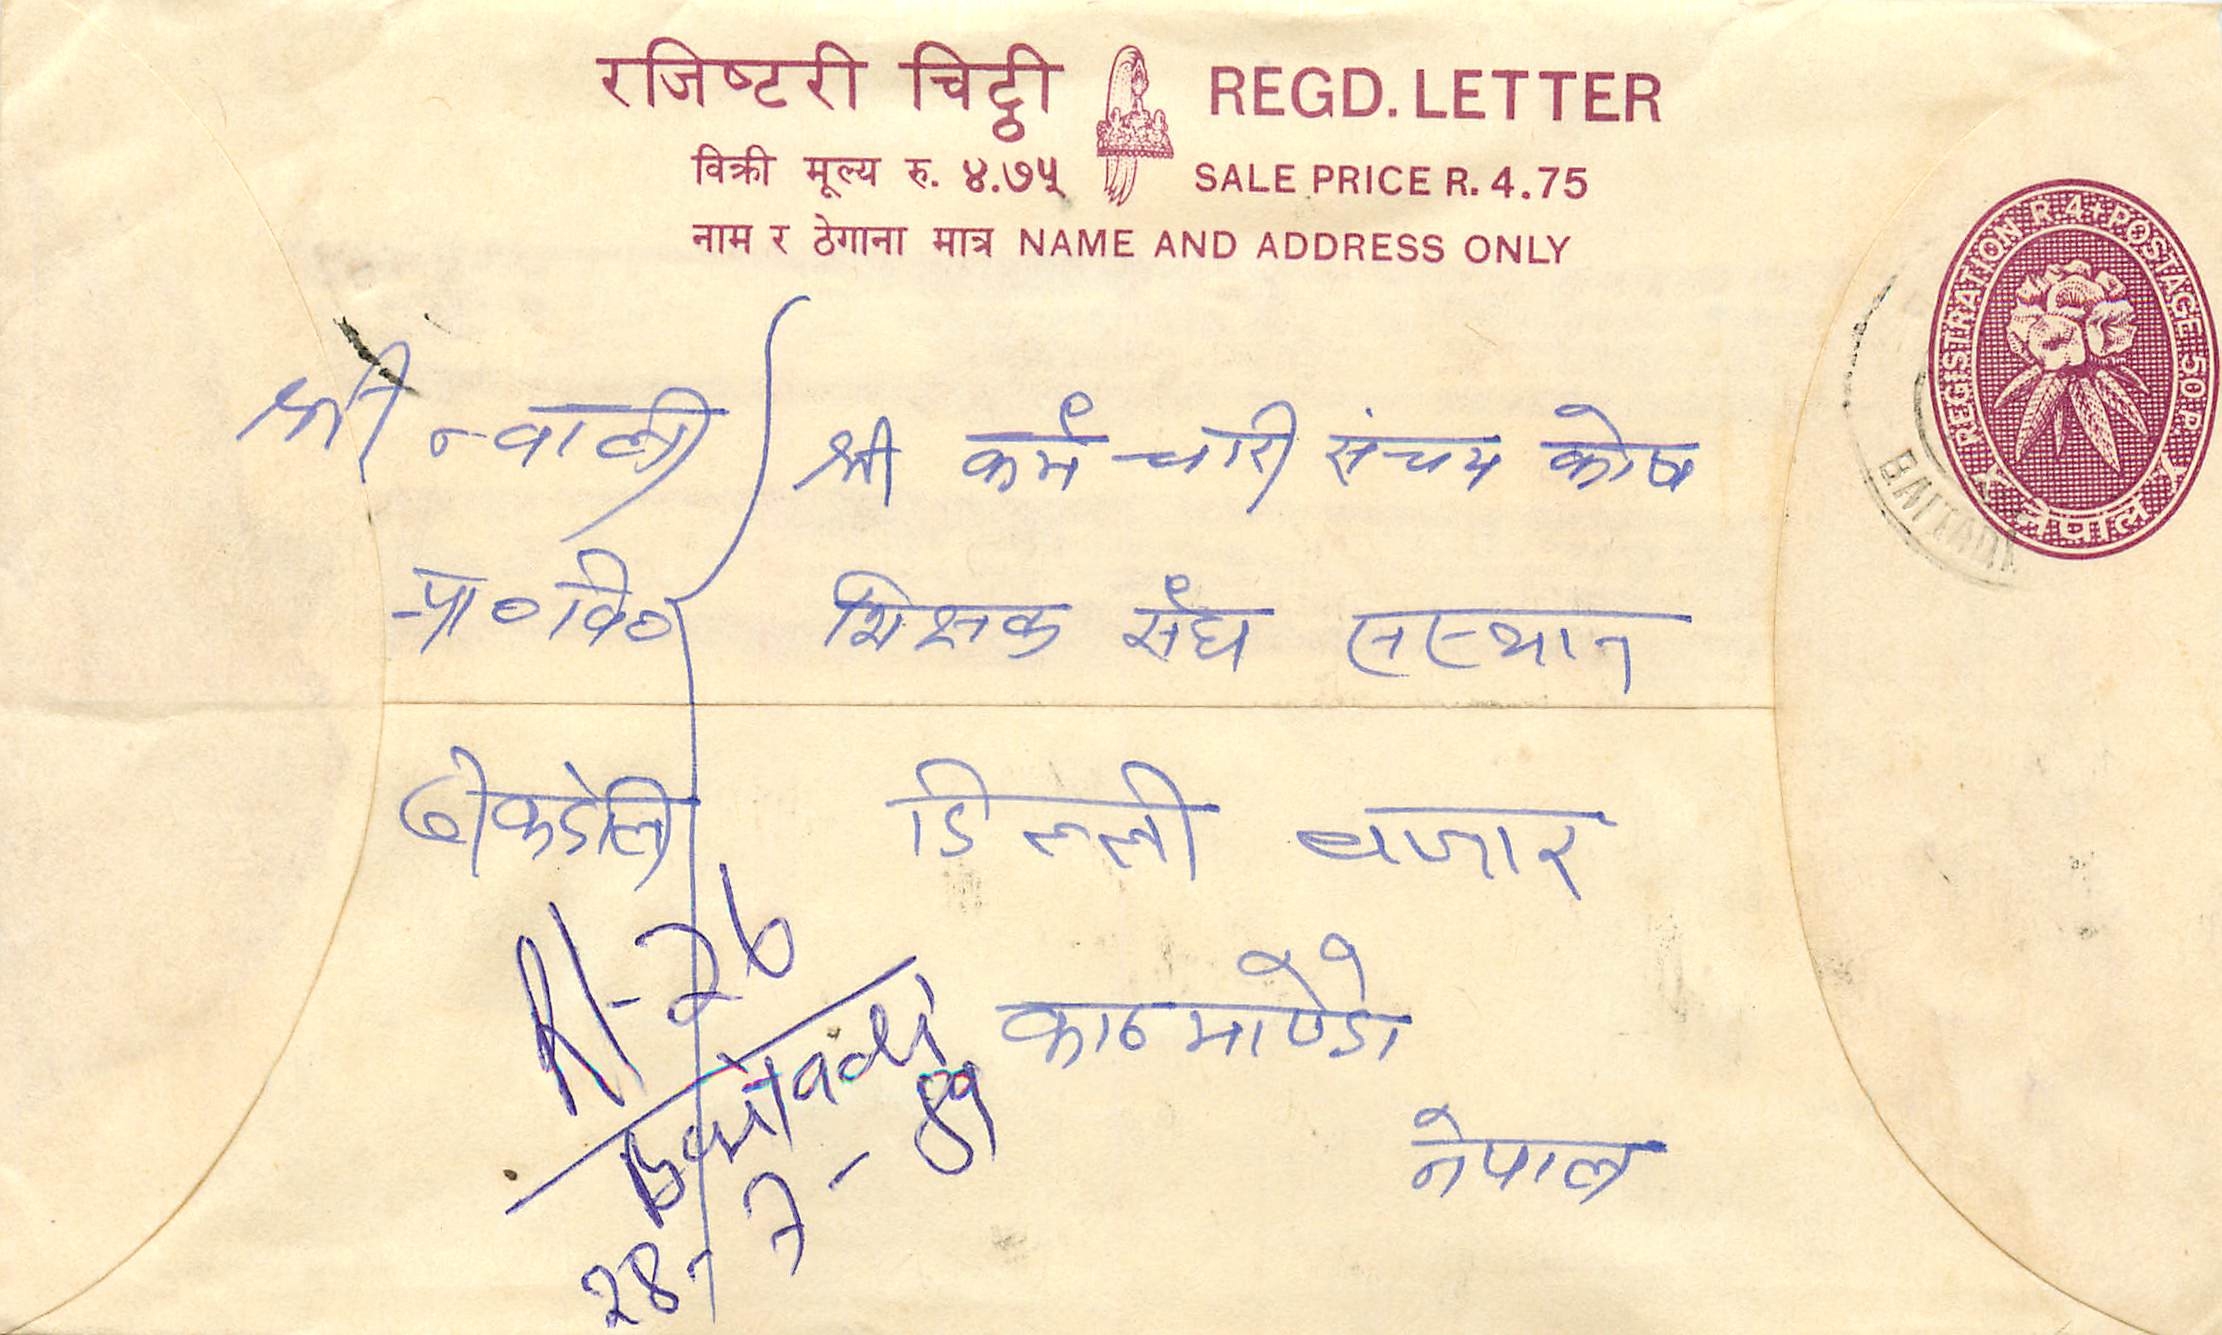 रजिष्टरी चिट्ठी REGD. LETTER
विक्री मूल्य रु. ४.७५ SALE PRICE R. 4.75
नाम र ठेगाना मात्र NAME AND ADDRESS ONLY
REGISTRATION R.4+POSTAGE 50 P.
नेपाल
BAITADI
श्री ग्वाली
प्रा०वि०
श्री कर्मचारी संचय कोष
शिक्षक संघ संस्थान
डिल्ली बजार
काठमाण्डौ
नेपाल
RI-26